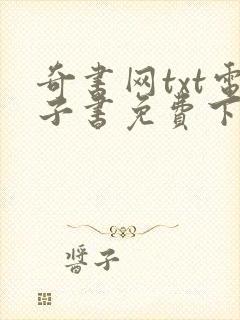 奇书网txt电
子书免费下
酱子